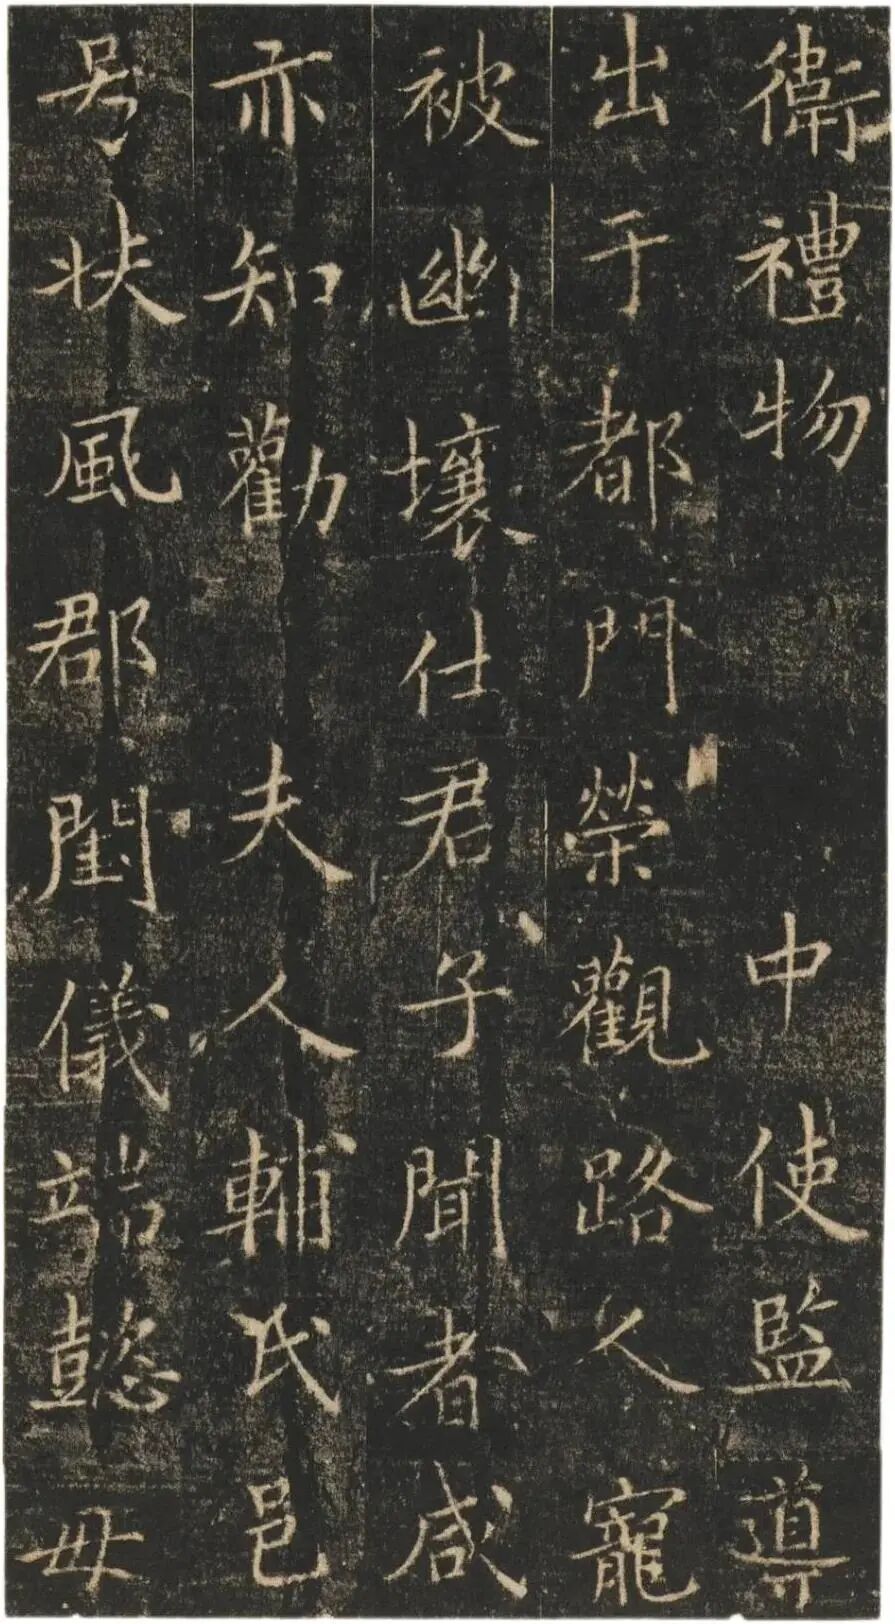 衛禮物 中使監導
出于都門榮觀路人寵
被幽壤仕君子聞者咸
亦知勸 夫人輔氏邑
号扶風郡閨儀端懿母